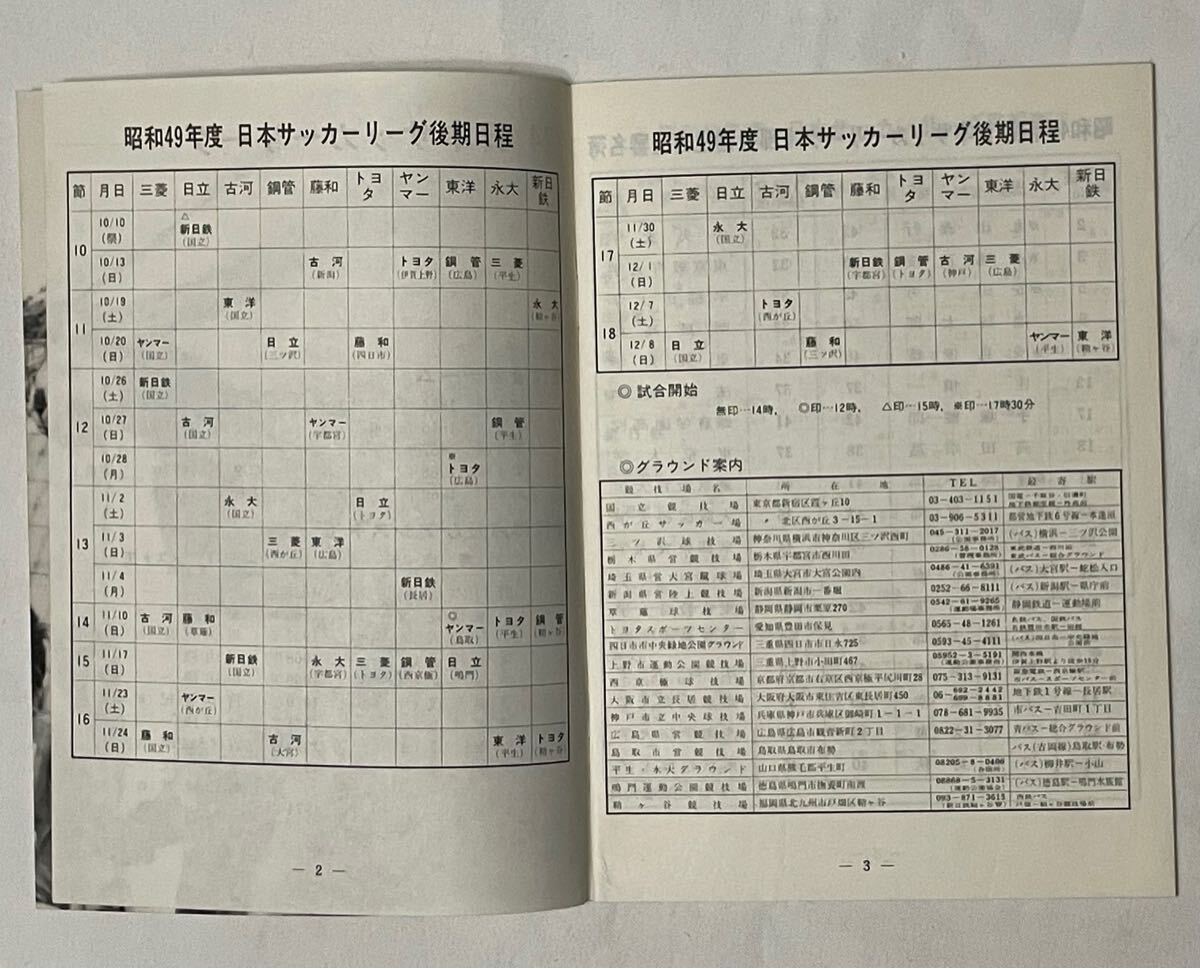 昭和49年度 日本サッカーリーグ後期日程
節 月日 三菱 日立 古河 鋼管 藤和 トヨタ ヤンマー 東洋 永大 新日鉄
10
10/10(祭) △新日鉄(国立)
10/13(日) 古河(新潟) トヨタ(伊賀上野) 鋼管(広島) 三菱(平生)
11
10/19(土) 東洋(国立) 永大(鞘ヶ谷)
10/20(日) ヤンマー(国立) 日立(三ツ沢) 藤和(四日市)
12
10/26(土) 新日鉄(国立)
10/27(日) 古河(国立) ヤンマー(宇都宮) 鋼管(平生)
10/28(月) ※トヨタ(広島)
13
11/2(土) 永大(国立) 日立(トヨタ)
11/3(日) 三菱(西が丘) 東洋(広島)
11/4(月) 新日鉄(長居)
14
11/10(日) 古河(国立) 藤和(草薙) ◎ヤンマー(鳥取) トヨタ(平生) 鋼管(鞘ヶ谷)
15
11/17(日) 新日鉄(国立) 永大(宇都宮) 三菱(トヨタ) 鋼管(西京極) 日立(鳴門)
16
11/23(土) ヤンマー(西が丘)
11/24(日) 藤和(国立) 古河(大宮) 東洋(平生) トヨタ(鞘ヶ谷)
― 2 ―
昭和49年度 日本サッカーリーグ後期日程
節 月日 三菱 日立 古河 鋼管 藤和 トヨタ ヤンマー 東洋 永大 新日鉄
17
11/30(土) 永大(国立)
12/1(日) 新日鉄(宇都宮) 鋼管(トヨタ) 古河(神戸) 三菱(広島)
18
12/7(土) トヨタ(西が丘)
12/8(日) 日立(国立) 藤和(三ツ沢) ヤンマー(平生) 東洋(鞘ヶ谷)
◎試合開始
無印…14時, ◎印…12時, △印…15時, ※印…17時30分
◎グラウンド案内
競技場名 所在地 TEL 最寄駅
国立競技場 東京都新宿区霞ヶ丘10 03-403-1151
西が丘サッカー場 〃 北区西が丘3-15-1 03-906-5311 都営地下鉄6号線-本蓮沼
三ツ沢球技場 神奈川県横浜市神奈川区三ツ沢西町 045-311-2017 (バス)横浜-三ツ沢公園
栃木県営競技場 栃木県宇都宮市西川田 0286-58-0128 (管理事務所) 東武バス-総合グラウンド
埼玉県営大宮蹴球場 埼玉県大宮市大宮公園内 0486-41-6391 (公園事務所) (バス)大宮駅-
新潟県営陸上競技場 新潟県新潟市一番堀 0252-66-8111 (バス)新潟駅-県庁前
草薙球技場 静岡県静岡市栗原270 0542-61-9265 静岡鉄道-運動場前
トヨタスポーツセンター 愛知県豊田市保見 0565-48-1261
四日市市中央緑地公園グラウンド 三重県四日市市日永725 0593-45-4111
上野市運動公園競技場 三重県上野市小田町467 05952-3-5191 関西本線 伊賀上野駅より徒歩15分
西京極球技場 京都府京都市右京区西京極平尻川町28 075-313-9131
大阪市立長居競技場 大阪府大阪市東住吉区東長居町450 06-692-2442 地下鉄1号線-長居駅
神戸市立中央球技場 兵庫県神戸市兵庫区御崎町1-1-1 078-681-9935 市バス-吉田町1丁目
広島県営競技場 広島県広島市観音新町2丁目 0822-31-3077 青バス-総合グラウンド前
鳥取市営競技場 鳥取県鳥取市布勢 バス(古岡線)鳥取駅-布勢
平生・永大グラウンド 山口県熊毛郡平生町 (バス)柳井駅-小山
鳴門運動公園競技場 徳島県鳴門市撫養町南浜 08868-5-3131 (バス)徳島駅-鳴門水族館
鞘ヶ谷競技場 福岡県北九州市戸畑区鞘ヶ谷 093-871-3615 西鉄バス
― 3 ―